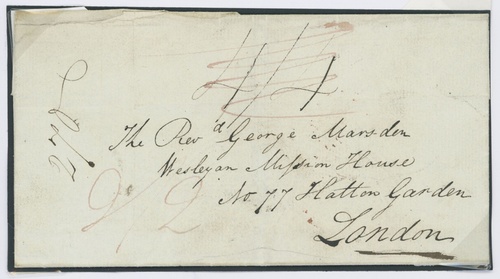 4/4
The Revd George Marsden
Wesleyan Mission House
No. 77 Hatton Garden
London
2/2